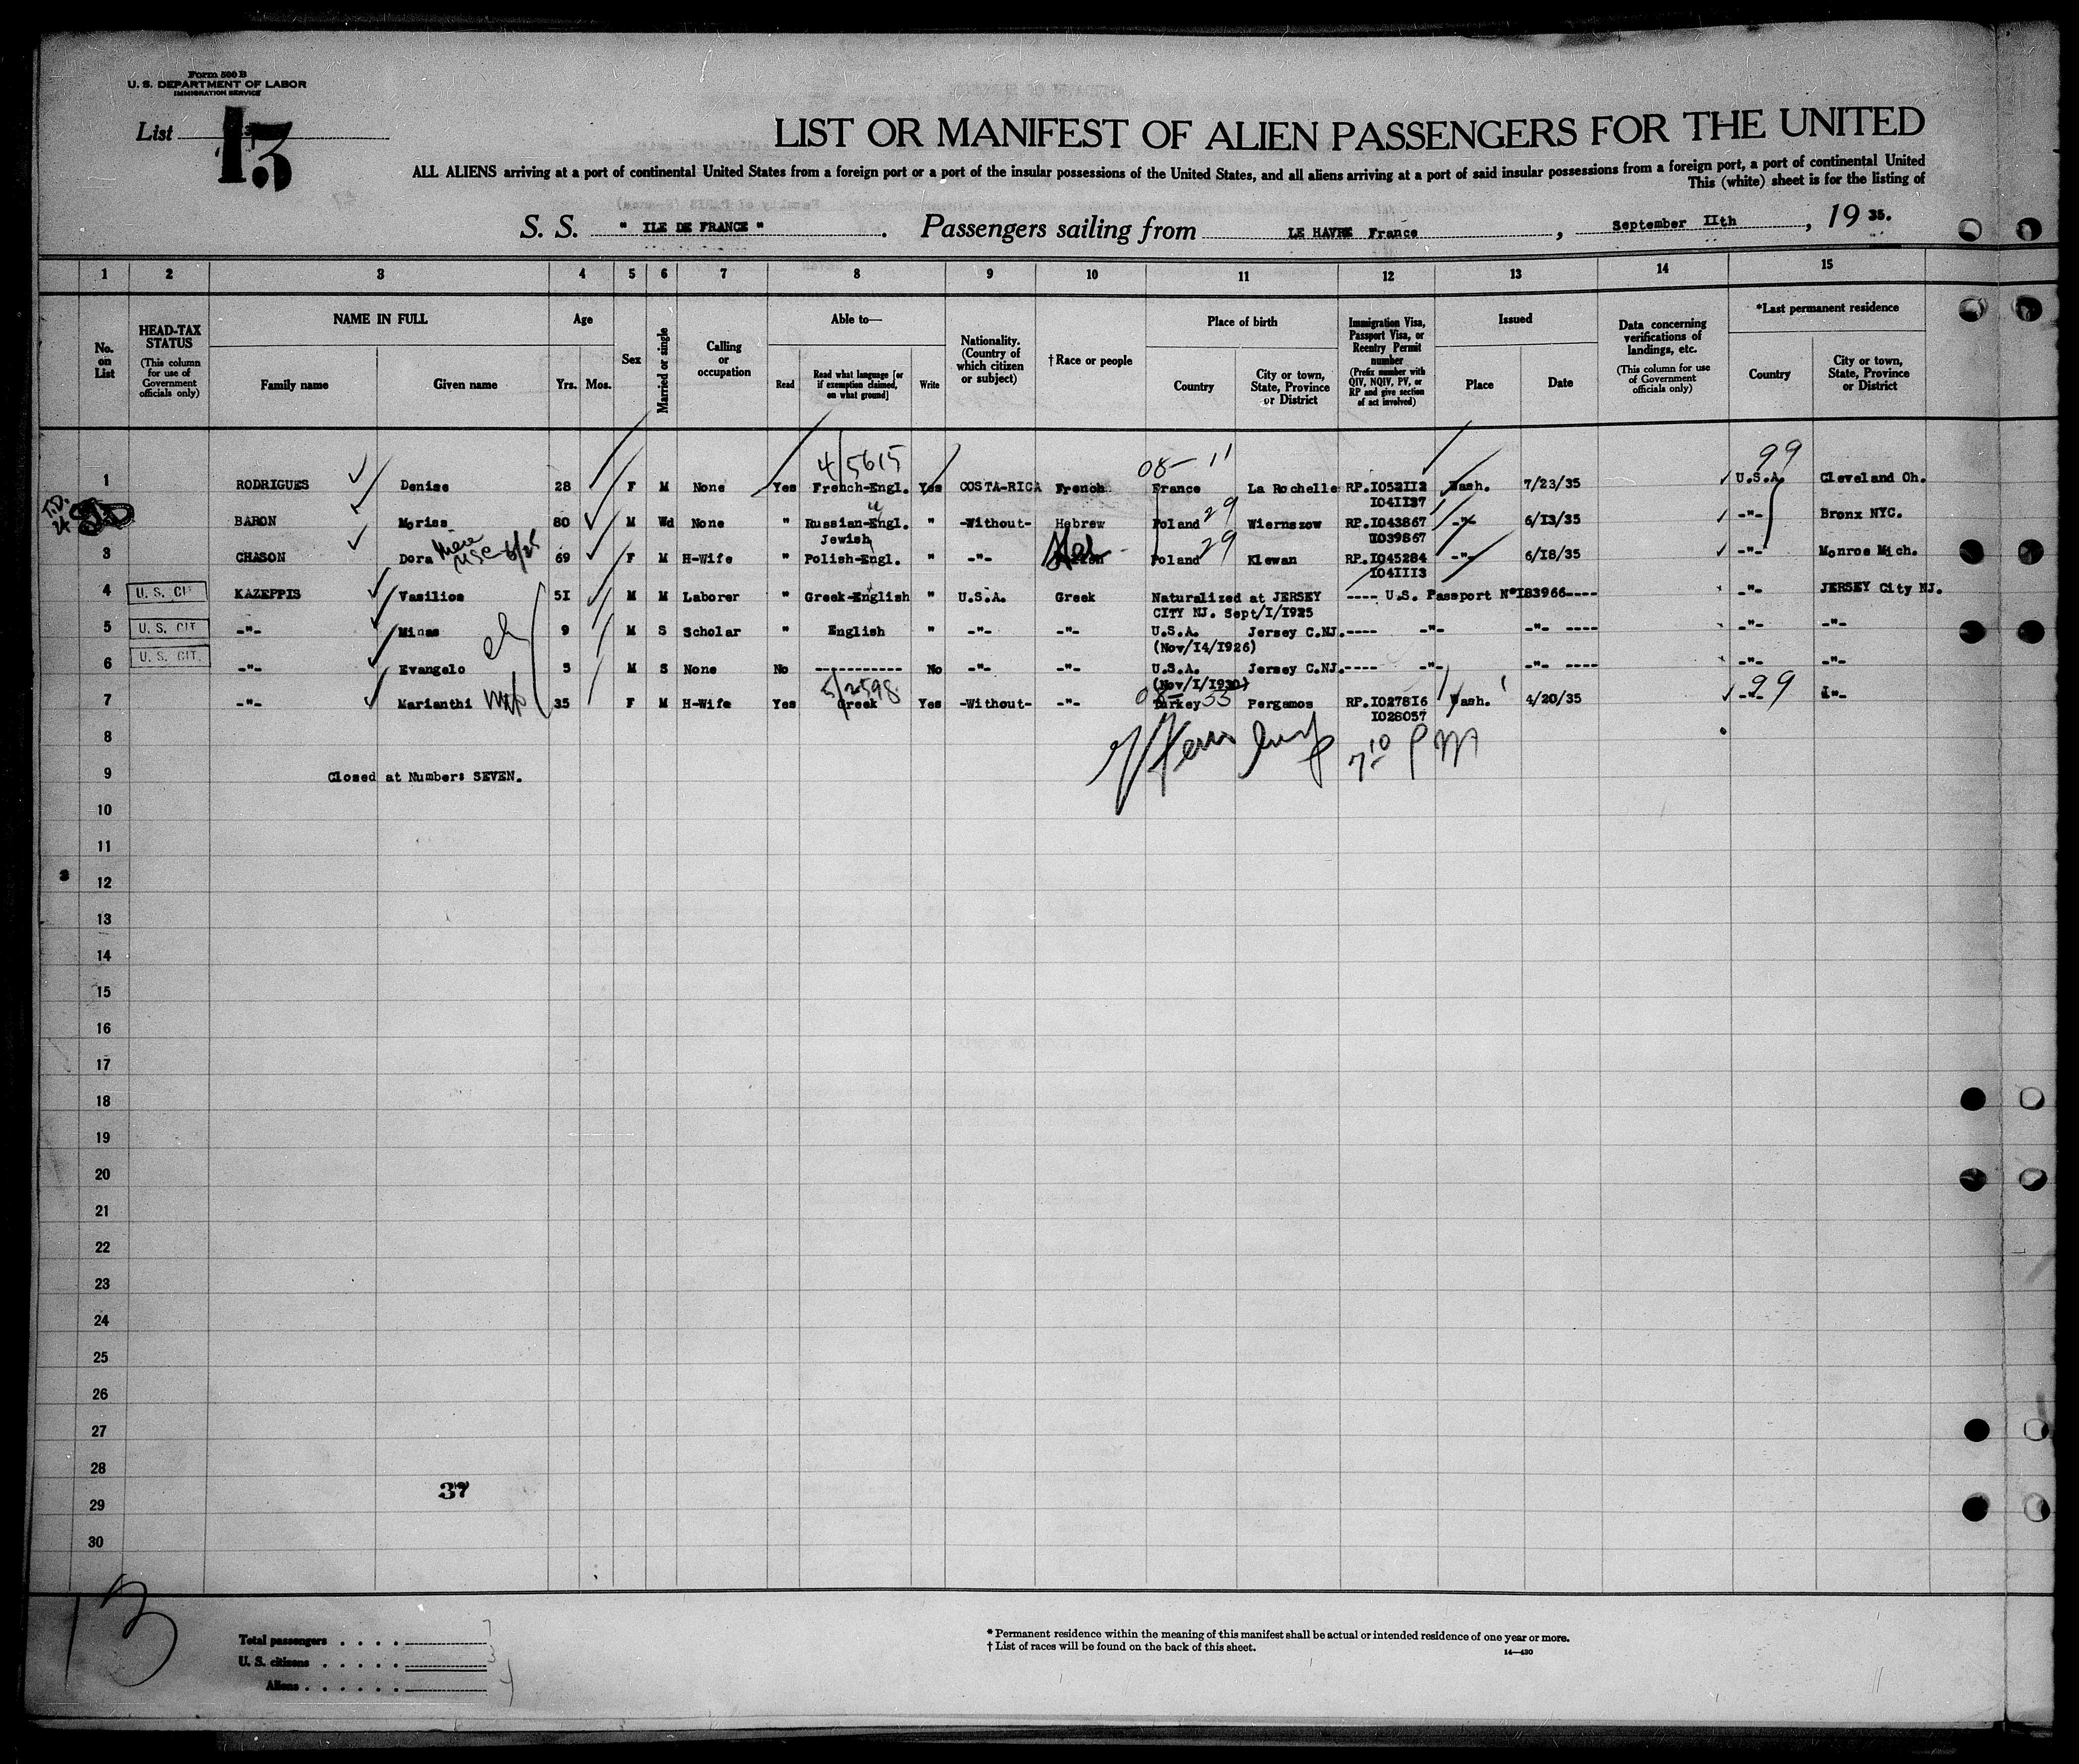 Form 500 B
U. S. DEPARTMENT OF LABOR
IMMIGRATION SERVICE
List 13
LIST OR MANIFEST OF ALIEN PASSENGERS FOR THE UNITED
ALL ALIENS arriving at a port of continental United States from a foreign port or a port of the insular possessions of the United States, and all aliens arriving at a port of said insular possessions from a foreign port, a port of continental United
This (white) sheet is for the listing of
S. S. " ILE DE FRANCE " . Passengers sailing from LE HAVRE France , September IIth , 19 35.
1 2 3 4 5 6 7 8 9 10 11 12 13 14 15
No. on List
HEAD-TAX STATUS (This column for use of Government officials only)
NAME IN FULL Family name Given name
Age Yrs. Mos.
Sex
Married or single
Calling or occupation
Able to— Read Read what language [or if exemption claimed, on what ground] Write
Nationality. (Country of which citizen or subject)
†Race or people
Place of birth Country City or town, State, Province or District
Immigration Visa, Passport Visa, or Reentry Permit number (Prefix number with QIV, NQIV, PV, or RP and give section of act involved)
Issued Place Date
Data concerning verifications of landings, etc. (This column for use of Government officials only)
*Last permanent residence Country City or town, State, Province or District
4/5615 08- 11 99
1 RODRIGUES Denise 28 F M None Yes French-Engl. Yes COSTA-RICA French France La Rochelle RP.I052II2 Wash. 7/23/35 U.S.A. Cleveland Oh.
I04II37
BARON Moriss 80 M Wd None " Russian-Engl. " -Without- Hebrew Poland 29 Wiernszow RP.I043867 -"- 6/I3/35 -"- Bronx NYC.
Jewish I039867
3 CHASON Dora 69 F M H-Wife " Polish-Engl. " -"- Heb Poland 29 Klewan RP.I045284 -"- 6/I8/35 -"- Monroe Mich.
I04III3
4 U. S. CIT KAZEPPIS Vasilios 5I M M Laborer " Greek-English " U.S.A. Greek Naturalized at JERSEY ---- U.S. Passport N°I83966---- -"- JERSEY City NJ.
CITY NJ. Sept/I/I925
5 U. S. CIT. -"- Minas 9 M S Scholar " English " -"- -"- U.S.A. Jersey C.NJ.---- -"- -"- ---- -"- -"-
(Nov/I4/I926)
6 U. S. CIT. -"- Evangelo 5 M S None No ----------- No -"- -"- U.S.A. Jersey C.NJ.---- -"- -"- ---- -"- -"-
(Nov/I/I930)
5/2598 08- 33 99
7 -"- Marianthi 35 F M H-Wife Yes Greek Yes -Without- -"- Turkey Pergamos RP.I0278I6 Wash. 4/20/35 -"- -"-
I028057
8
7 10 PM
9 Closed at Number: SEVEN.
10
11
12
13
14
15
16
17
18
19
20
21
22
23
24
25
26
27
28
37
29
30
13
Total passengers . . . . 7
U. S. citizens . . . . . 3
Aliens . . . . . . 4
* Permanent residence within the meaning of this manifest shall be actual or intended residence of one year or more.
† List of races will be found on the back of this sheet.
14—430